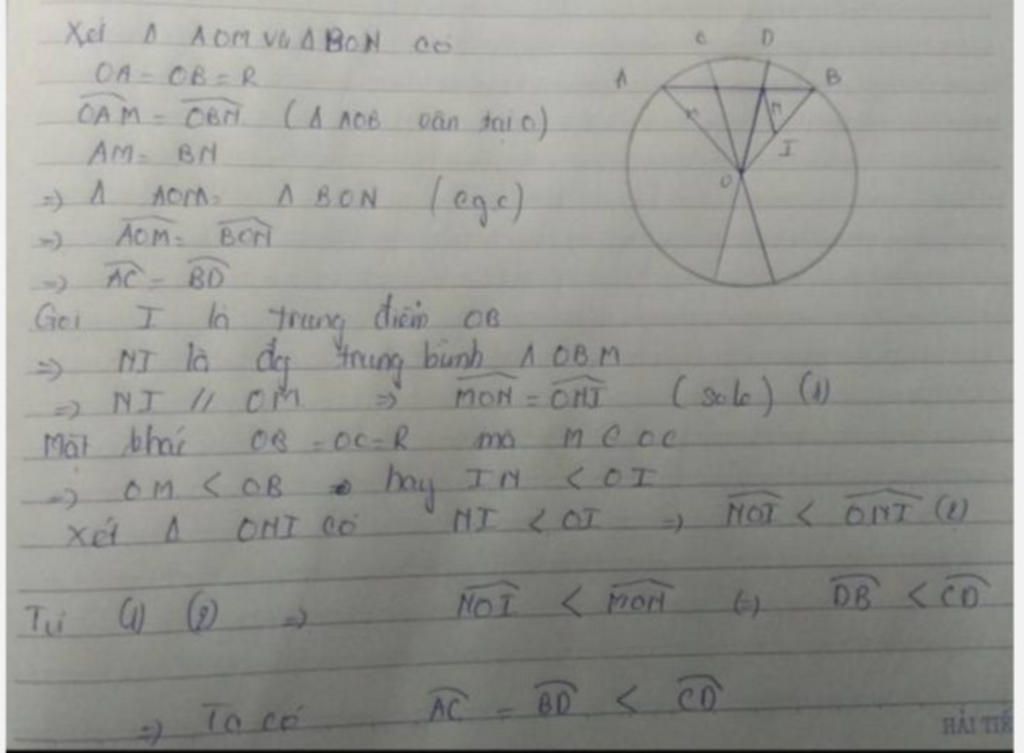 Xét Δ AOM và Δ BON có
OA = OB = R
OAM = OBN (Δ AOB cân tại O)
AM = BN
=> Δ AOM = Δ BON (cgc)
=> AOM = BON
=> AC = BD
Gọi I là trung điểm OB
=> NI là đg trung bình Δ OBM
=> NI // OM => MON = ONI (sole) (1)
Mặt khác OB = OC = R mà M ∈ OC
=> OM < OB => hay IN < OI
Xét Δ ONI có NI < OI => NOI < ONI (2)
Từ (1) (2) => NOI < MON (=) DB < CD
=> Ta có AC = BD < CD
C D
A B
M N
I
O
HẢI TIẾ